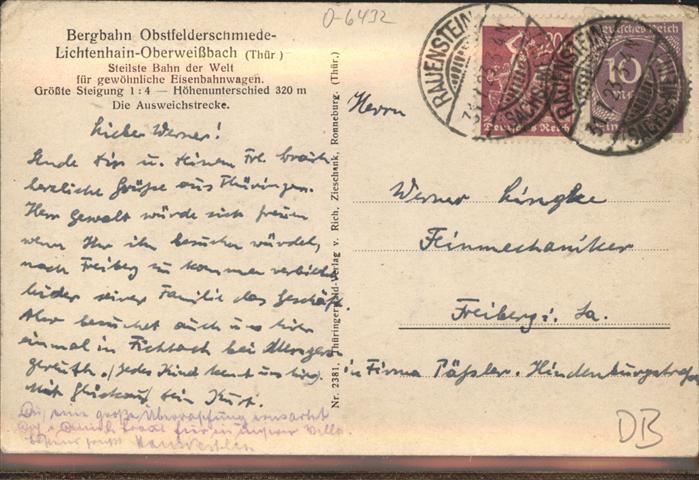 Bergbahn Obstfelderschmiede-
Lichtenhain-Oberweißbach (Thür.)
Steilste Bahn der Welt
für gewöhnliche Eisenbahnwagen.
Größte Steigung 1:4 — Höhenunterschied 320 m
Die Ausweichstrecke.
O-6432
RAUENSTEIN
SACHS.-M.
Deutsches Reich
RAUENSTEIN
SACHS.-M.
Deutsches Reich
10
Lieber Werner!
Sende Dir u. Deinem Frl. Braut
herzliche Grüße aus Thüringen.
Herr Gewalt würde sich freuen
wenn Ihr ihn besuchen würdet,
nach Freiberg zu kommen verbietet
leider seiner Familie das Geschäft.
Aber besuchet auch uns hier
einmal in
Jedes Kind kennt uns hier.
Mit Glückauf Dein Kurt.
eine große Überraschung erwartet
Nr. 2381, Thüringerwald-Verlag v. Rich. Zieschank, Ronneburg. (Thür.)
Herrn
Werner Lingke
Feinmechaniker
Freiberg i. Sa.
in Firma Päßler. Hindenburgstraße
DB